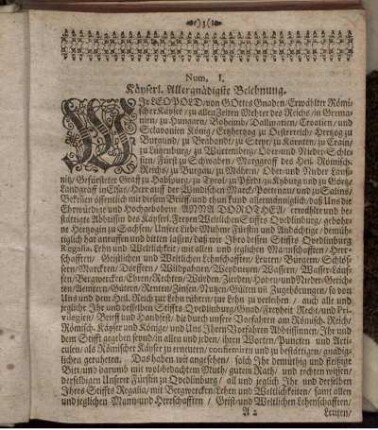 3
Num. I.
Käyserl. Allergnädigste Belehnung.
WJr LEOPOLD/ von GOttes Gnaden/ Erwählter Römi-
scher Kayser/ zu allen Zeiten Mehrer des Reichs/ in Germa-
nien/ zu Hungarn/ Böheimb/ Dallmatien/ Croatien/ und
Sclavonien König/ Ertzhertzog zu Oesterreich/ Hertzog zu
Burgund/ zu Brabandt/ zu Steyr/ zu Kärnten/ zu Crain/
zu Lützenburg/ zu Würtemberg/ Ober- und Nieder-Schle-
sien/ Fürst zu Schwaben/ Marggraff des Heil. Römisch.
Reichs/ zu Burgau/ zu Mähren/ Ober- und Nieder Lauß-
nitz/ Gefürsteter Graff zu Habspurg/ zu Tyrol/ zu Pfirdt/ zu Kyburg und zu Görtz/
Landgraff in Elsas/ Herr auff der Windischen Marck/ Portenau/ und zu Salins/
Bekennen öffentlich mit diesem Brieff/ und thun kund allermänniglich/ daß Uns die
Ehrwürdige und Hochgebohrne ANNA DOROTHEA, erwählte und be-
stättigte Abbtißin des Kayserl. Freyen Weltlichen Stiffts Quedlinburg/ gebohr-
ne Hertzogin zu Sachsen/ Unsere liebe Muhme Fürstin und Andächtige/ demü-
thiglich hat anruffen und bitten lassen/ daß wir Ihro desselben Stiffts Quedlinburg
Regalia, Lehn und Weltlichkeit/ mit allen und jeglichen Mannschafften/ Herr-
schafften/ Geistlichen und Weltlichen Lehnschafften/ Leuten/ Bürgern/ Schlös-
sern/ Marckten/ Dörffern/ Wildpahnen/ Weydneyen/ Wassern/ Wasser-Läuf-
fen/ Bergwercken/ Ehren/ Rechten/ Würden/ Zierden/ Hohen und Niedern Gerich-
ten/ Aemtern/ Gülten/ Renten/ Zinsen/ Nutzen/ Gütern und Zugehörungen/ so von
Uns und dem Heil. Reich zur Lehn rühren/ zur Lehn zu verleihen/ auch alle und
jegliche Ihr und desselben Stiffts Quedlinburg/ Gnade/ Freyheit/ Recht/ und Pri-
vilegien/ Brieff und Handfest/ die durch unsere Vorfahren am Römisch. Reich/
Römisch. Käyser und Könige/ und Uns/ Ihren Vorfahren Abbtißinnen/ Ihr und dem
Stifft gegeben seynd/ in allen und jeden/ ihren Worten/ Puncten und Arti-
culn/ als Römischer Käyser zu erneuern/ confirmiren und zu bestättigen/ gnädig-
lichen geruheten. Das haben wir angesehen/ solch Ihr demütig und fleissigst
Bitt/ und darumb mit wolbedachtem Muth/ gutem Rath/ und rechten wissen/
derselbigen Unserer Fürstin zu Quedlinburg/ all und jeglich Ihr und desselben
Ihres Stiffts Regalia, mit Bergwercken Lehen und Weltlichkeiten/ samt allen
und jeglichen Mann- und Herrschafften/ Geist- und Weltlichen Lehenschafften/
A 2 Leuten/